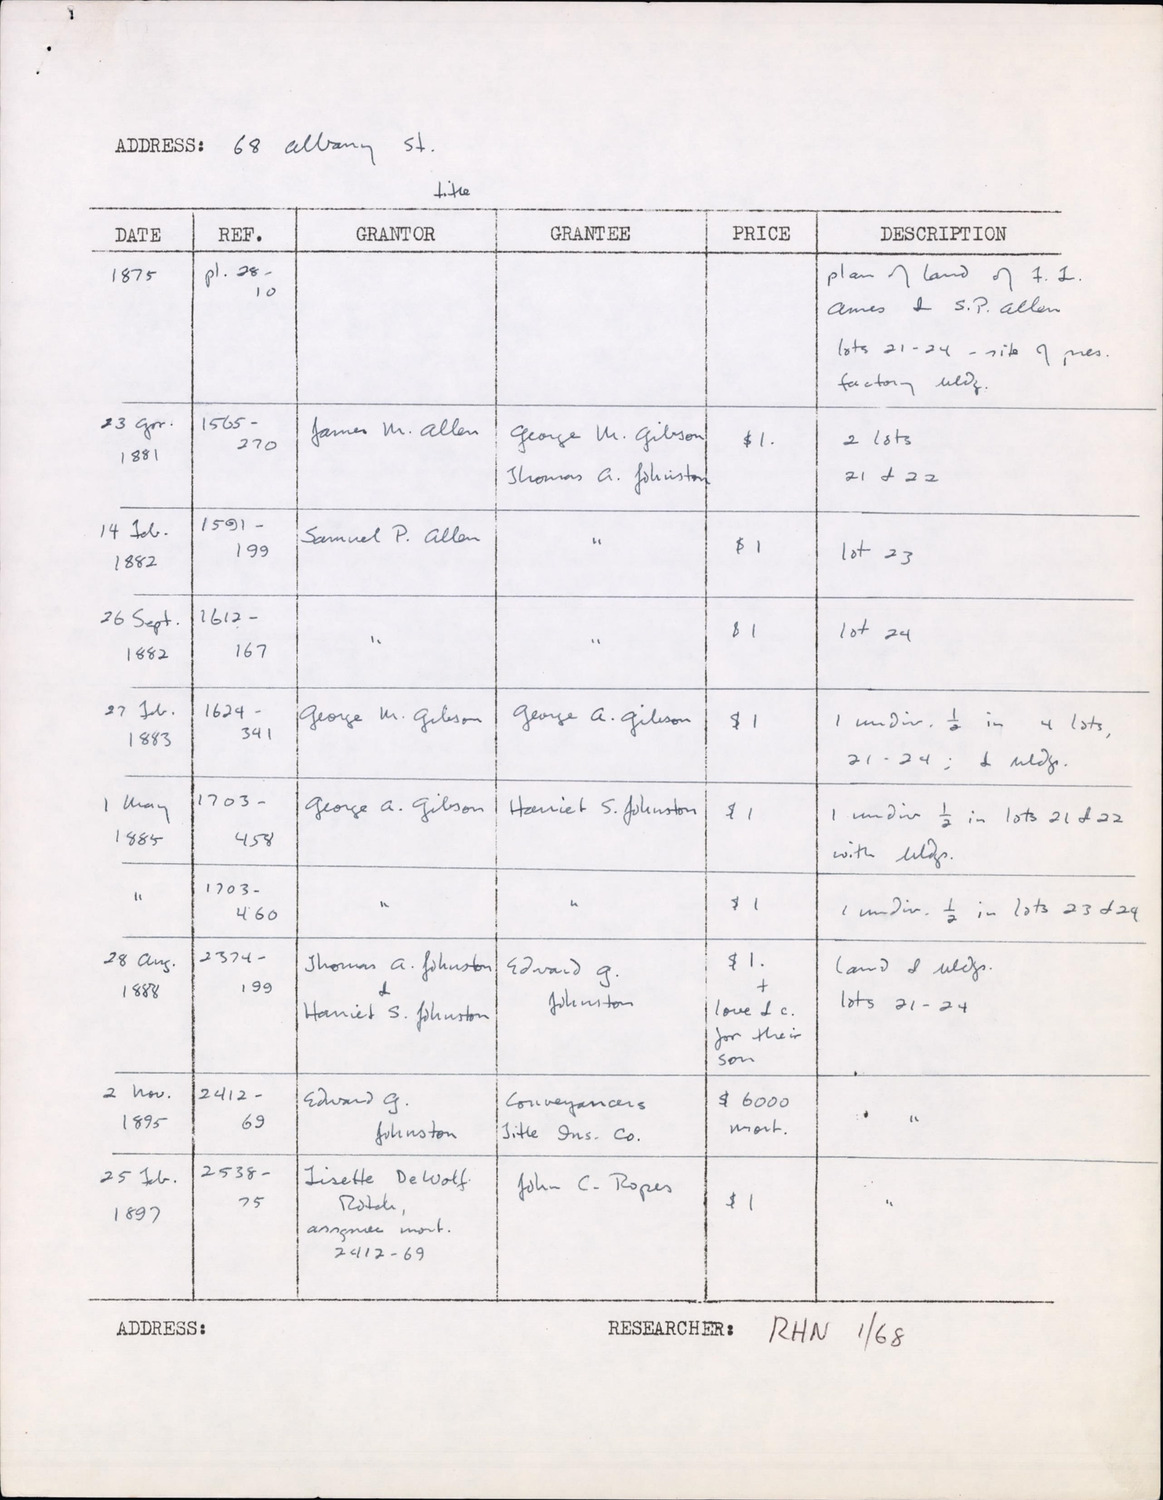 ADDRESS: 68 Albany St.
title
DATE REF. GRANTOR GRANTEE PRICE DESCRIPTION
1875 pl. 28-
10
plan of land of F. L.
Ames & S.P. Allen
lots 21-24 - site of pres.
factory bldg.
23 Apr.
1881
1565-
270
James M. Allen
George M. Gibson
Thomas A. Johnston
$1.
2 lots
21 & 22
14 Feb.
1882
1591-
199
Samuel P. Allen
"
$1
lot 23
26 Sept.
1882
1612-
167
"
"
$1
lot 24
27 Feb.
1883
1624-
341
George M. Gibson
George A. Gibson
$1
1 undiv. 1/2 in 4 lots,
21-24; & bldgs.
1 May
1885
1703-
458
George A. Gibson
Harriet S. Johnston
$1
1 undiv 1/2 in lots 21 & 22
with bldgs.
"
1703-
460
"
"
$1
1 undiv. 1/2 in lots 23 & 24
28 Aug.
1888
2374-
199
Thomas A. Johnston
&
Harriet S. Johnston
Edward G.
Johnston
$1.
+
love & c.
for their
son
land & bldgs.
lots 21-24
2 Nov.
1895
2412-
69
Edward G.
Johnston
Conveyancers
Title Ins. Co.
$6000
mort.
"
25 Feb.
1897
2538-
75
Lisette DeWolf
Rotch,
assignee mort.
2412-69
John C. Ropes
$1
"
ADDRESS: RESEARCHER: RHN 1/68